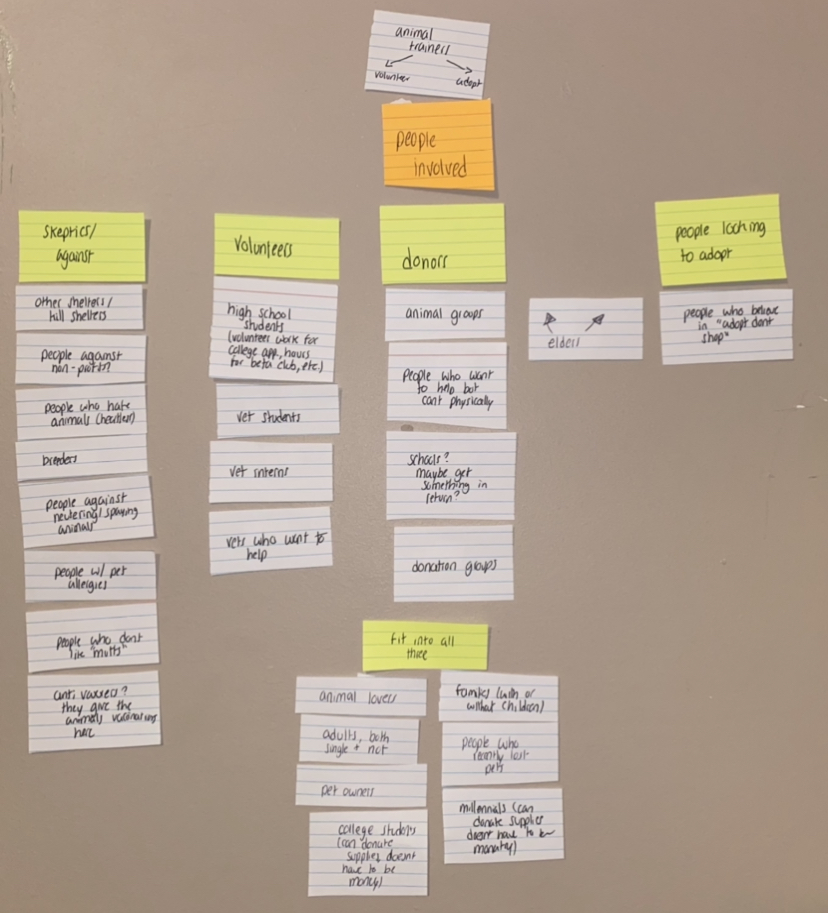 animal
trainers
volunteer
adopt
people
involved
skeptics/
against
other shelters/
kill shelters
people against
non-profits?
people who hate
animals (heartless)
breeders
people against
neutering/spaying
animals
people w/ pet
allergies
people who dont
like "mutts"
anti vaxxers?
they give the
animals vaccinations
here
Volunteers
high school
students
(volunteer work for
college app, hours
for beta club, etc.)
vet students
vet interns
vets who want to
help
donors
animal groups
people who want
to help but
cant physically
schools?
maybe get
something in
return?
donation groups
elders
people looking
to adopt
people who believe
in "adopt dont
shop"
fit into all
three
animal lovers
adults, both
single + not
pet owners
college students
(can donate
supplies doesnt
have to be
money)
families (with or
without children)
people who
recently lost
pets
millennials (can
donate supplies
doesnt have to be
monetary)